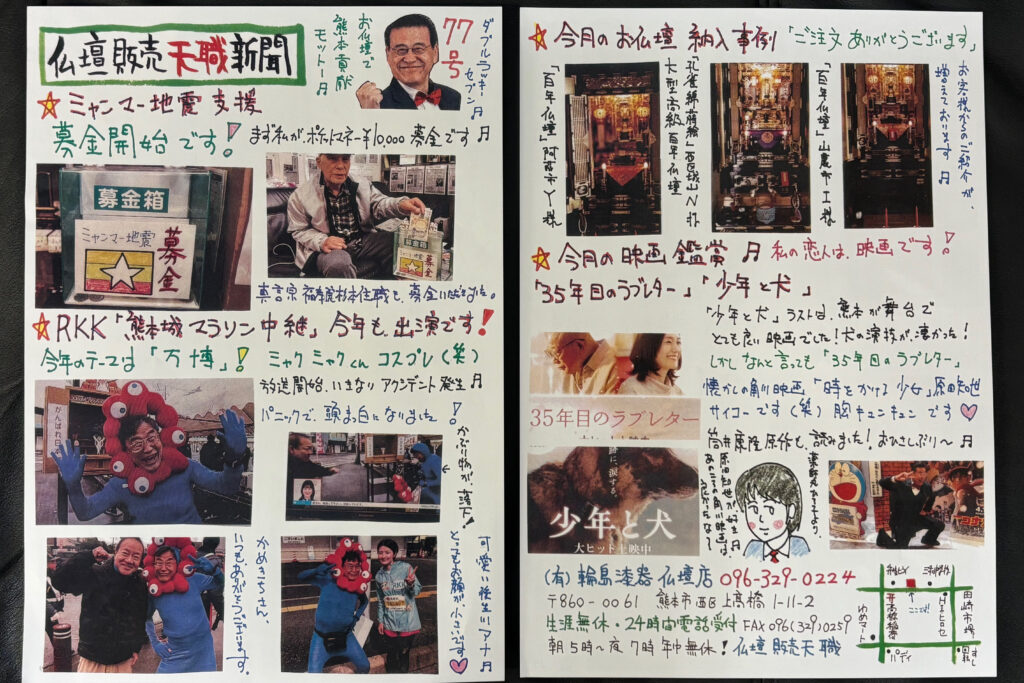 仏壇販売天職新聞
お仏壇で
熊本貢献
モットー♫
77号
ダブルラッキーセブン♫
☆ミャンマー地震支援
募金開始です!
まず私が、ポケットマネー¥10000 募金です♫
募金箱
ミャンマー地震
募金
募金箱
募金
真言宗 杉本住職も、募金いただきました。
☆RKK「熊本城マラソン中継」今年も、出演です!
今年のテーマは「万博」! ミャクミャクくん コスプレ(笑)
放送開始、いきなり アクシデント発生♫
パニックで、頭ま白になりました!
かぶり物が、落下!
がんばれ
かめきちさん、
いつもありがとうございます。
可愛い 後生川アナ♫
とってもお顔が、小さいです♡
☆今月のお仏壇 納入事例「ご注文ありがとうございます」
大型高級百年仏壇
「百年仏壇」山鹿市 I様
「百年仏壇」阿蘇市 Y様
お客様からのご紹介が、
増えております♫
☆今月の映画鑑賞♫ 私の恋人は、映画です!
「35年目のラブレター」「少年と犬」
「少年と犬」ラストは、熊本が舞台で
とても良い映画でした!犬の演技が、凄かった!
しかし なんと言っても「35年目のラブレター」
懐かしの角川映画「時をかける少女」原田知世
サイコーです(笑) 胸キュンキュンです♡
筒井康隆原作も、読みました!おひさしぶり〜♫
35年目のラブレター
大ヒット上映中
少年と犬
大ヒット上映中
原田知世が好き♫
(有)輪島漆器仏壇店 096-329-0224
〒860-0061 熊本市西区上高橋1-11-2
生涯無休・24時間電話受付 FAX096(329)0259
朝5時〜夜7時 年中無休!仏壇販売天職
田崎市場
ゆめマート
ここだよ
パディ